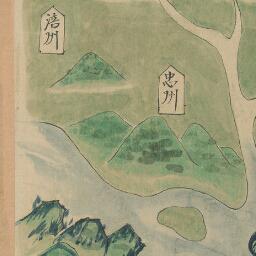 涪州
忠州